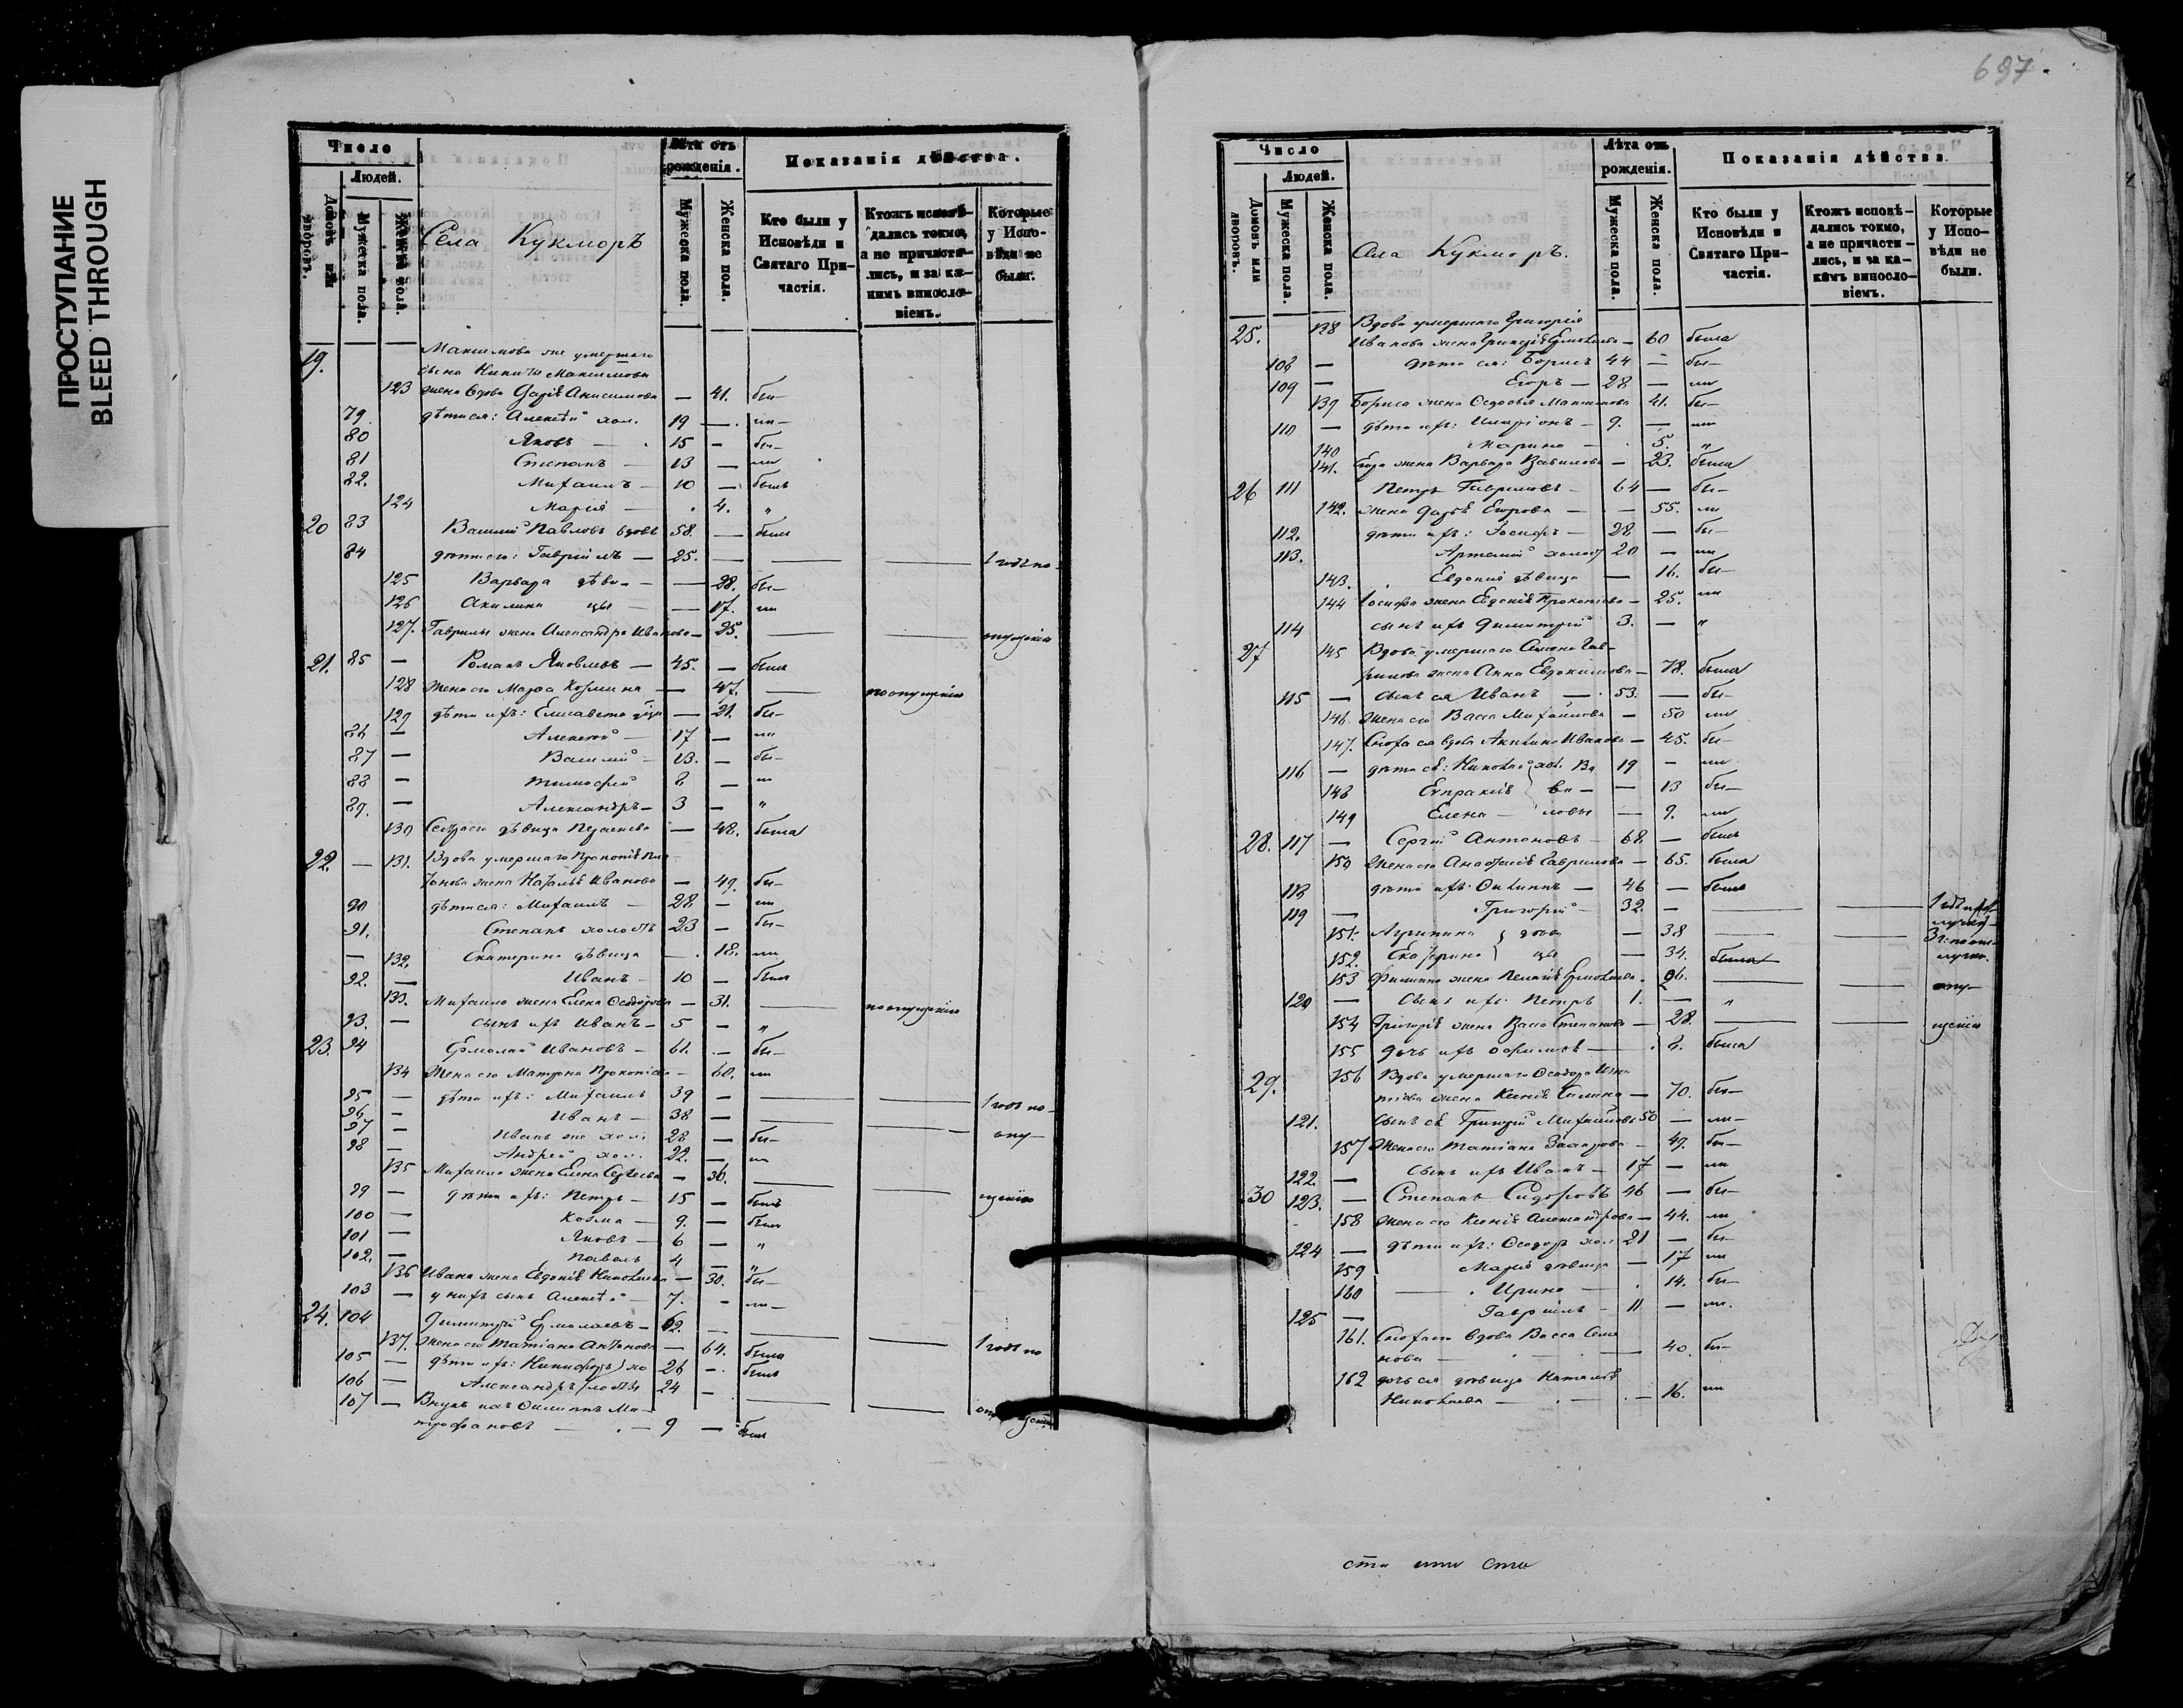 ПРОСТУПАНИЕ
BLEED THROUGH
Число
Людей.
Домовъ или дворовъ.
Мужеска пола.
Женска пола.
Села Кукморъ
Лѣта отъ рожденія.
Мужеска пола.
Женска пола.
Показанія дѣйства.
Кто были у Исповѣди и Святаго Причастія.
Ктожъ исповѣдались токмо, а не причастились, и за какимъ винословіемъ.
Которые у Исповѣди не были.
19. Максимова же умершаго
сына Никиты Максимова
123 жена вдова Дарія Анисимова — 41. бы—
79. дѣти ея: Алексѣй хол. 19 —
80 Яковъ — 15 — бы—
81 Степанъ — 13 —
82. Михаилъ — 10 — былъ
124 Марія — 4. "
20 83 Василий Павловъ вдовъ 58. — былъ
84 дѣти его: Гавріилъ — 25. — 1 годъ по
125 Варвара дѣви — — 28. бы—
126 Акилина цы — — 17. ли
127. Гаврилы жена Александра Иванова — 25. опущенію
21. 85 — Романъ Яковлевъ — 45. — былъ
128 жена его Марѳа Козмина — 47. по опущенію
129 дѣти ихъ: Елисавета — 21. бы—
86 — Алексѣй — 17 — ли
87 — Василий — 13. — бы—
88 — Тимофей 8 — ли
89. — Александръ — 3 — "
130 Сестра его дѣвица Пелагея — 48. была
22. — 131. Вдова умершаго Прокопія Пла
тонова жена Наталья Иванова — 49. бы—
90 дѣти ея: Михаилъ — 28 — ли
91. Степанъ холостъ 23 — бы—
— 132. Екатерина дѣвица — 18. ли
92. — Иванъ — 10 — былъ
133. Михаила жена Елена Ѳеодорова — 31. по опущенію
93. — сынъ ихъ Иванъ — 5 — "
23. 94 Ермолай Ивановъ — 61. — бы—
134 Жена его Матрона Прокопіева — 60. ли
95 — дѣти ихъ: Михаилъ 39 — 1 годъ по
96 — Иванъ — 38 —
97 — Иванъ же хол. 28 — бы— опу—
98 — Андрей хол. 22. — ли
135 Михаила жена Елена Сергѣева — 36. щенію
99 — дѣти ихъ: Петръ — 15 — былъ
100 — Козма — 9. — былъ
101 — Яковъ — 6 — "
102. — Павелъ 4 — "
136 Ивана жена Евдокія Николаева — 30. бы—
103 — у нихъ сынъ Алексѣй — 7. — ли—
24. 104 Димитрій Ермолаевъ — 62. —
137. Жена его Татіана Антонова — 64. была 1 годъ по
105 — дѣти ихъ: Никифоръ } хо 26 — былъ
106 — Александръ } лосты 24 —
107 — Внукъ ихъ Филиппъ Ми
трофановъ — 9 — былъ
697.
Число
Людей.
Домовъ или дворовъ.
Мужеска пола.
Женска пола.
Села Кукморъ.
Лѣта отъ рожденія.
Мужеска пола.
Женска пола.
Показанія дѣйства.
Кто были у Исповѣди и Святаго Причастія.
Ктожъ исповѣдались токмо, а не причастились, и за какимъ винословіемъ.
Которые у Исповѣди не были.
25. 138 Вдова умершаго Григорія
Иванова жена Ермолаева — 60 была
108 — дѣти ея: Борисъ 44 — бы—
109 — Егоръ — 28 — ли
139 Бориса жена Ѳедосья Максимова 41. бы—
110 — дѣти ихъ: Иларіонъ — 9. — ли
140 Марина — 5. "
141. Егора жена Варвара Вавилова — 23. была
26 111 Петръ Гавриловъ — 64 — бы—
142. жена Дарья Егорова — — 55. ли
112. дѣти ихъ: Іосифъ — 28 — бы—
113. Артемий холост 20 — ли
143. Евдокия дѣвица — 16. бы—
144 Іосифа жена Евдокія Прокопіева — 25. ли
114 сынъ ихъ Димитрий 3. — "
27 145 Вдова умершаго Симеона Гав
рилова жена Анна Евдокимова — 78. была
115 — сынъ ея Иванъ — 53. — бы—
146. жена его Васса Михайлова — 50 ли
147. Сноха ея вдова Акилина Иванова — 45. бы—
116 — дѣти ея: Николай хол. 19 — ли
148 Евпраксія — 13 бы—
149 Елена — 9. ли
28. 117 — Сергій Антоновъ — 68 — былъ
150 Жена его Анастасія Гаврилова — 65. была
118 дѣти ихъ: Филиппъ — 46 — былъ
119 — Григорій — 32. —
151. Агрипина } дѣви — 38
152. Екатерина } цы — 34. была
153 Филиппа жена Пелагія Ермолаева. 26. опу—
120 — сынъ ихъ Петръ 1. — "
154 Григорія жена Васса Степанова — 28. щенію
155 дочь ихъ Ѳефимія — 8. была
29. 156 Вдова умершаго Ѳеодора
жена Ксенія — 70. бы—
121. сынъ ея Григорій Михайловъ 50 — ли—
157 Жена его Татіана Захарова — 49. бы—
122. — сынъ ихъ Иванъ — 17 — ли
30 123. — Степанъ Сидоровъ 46 — бы—
158 Жена его Ксенія Александрова — 44. ли
124 — дѣти ихъ: Ѳеодоръ хол. 21 — бы—
159 Марія дѣвица — 17 ли
160 Ирина — 14. бы—
125 — Гавріилъ — 11 — ли.
161. Сноха его вдова Васса Семе
нова — 40. бы—
162 дочь ея дѣвица Наталья
Николаева — 16. ли